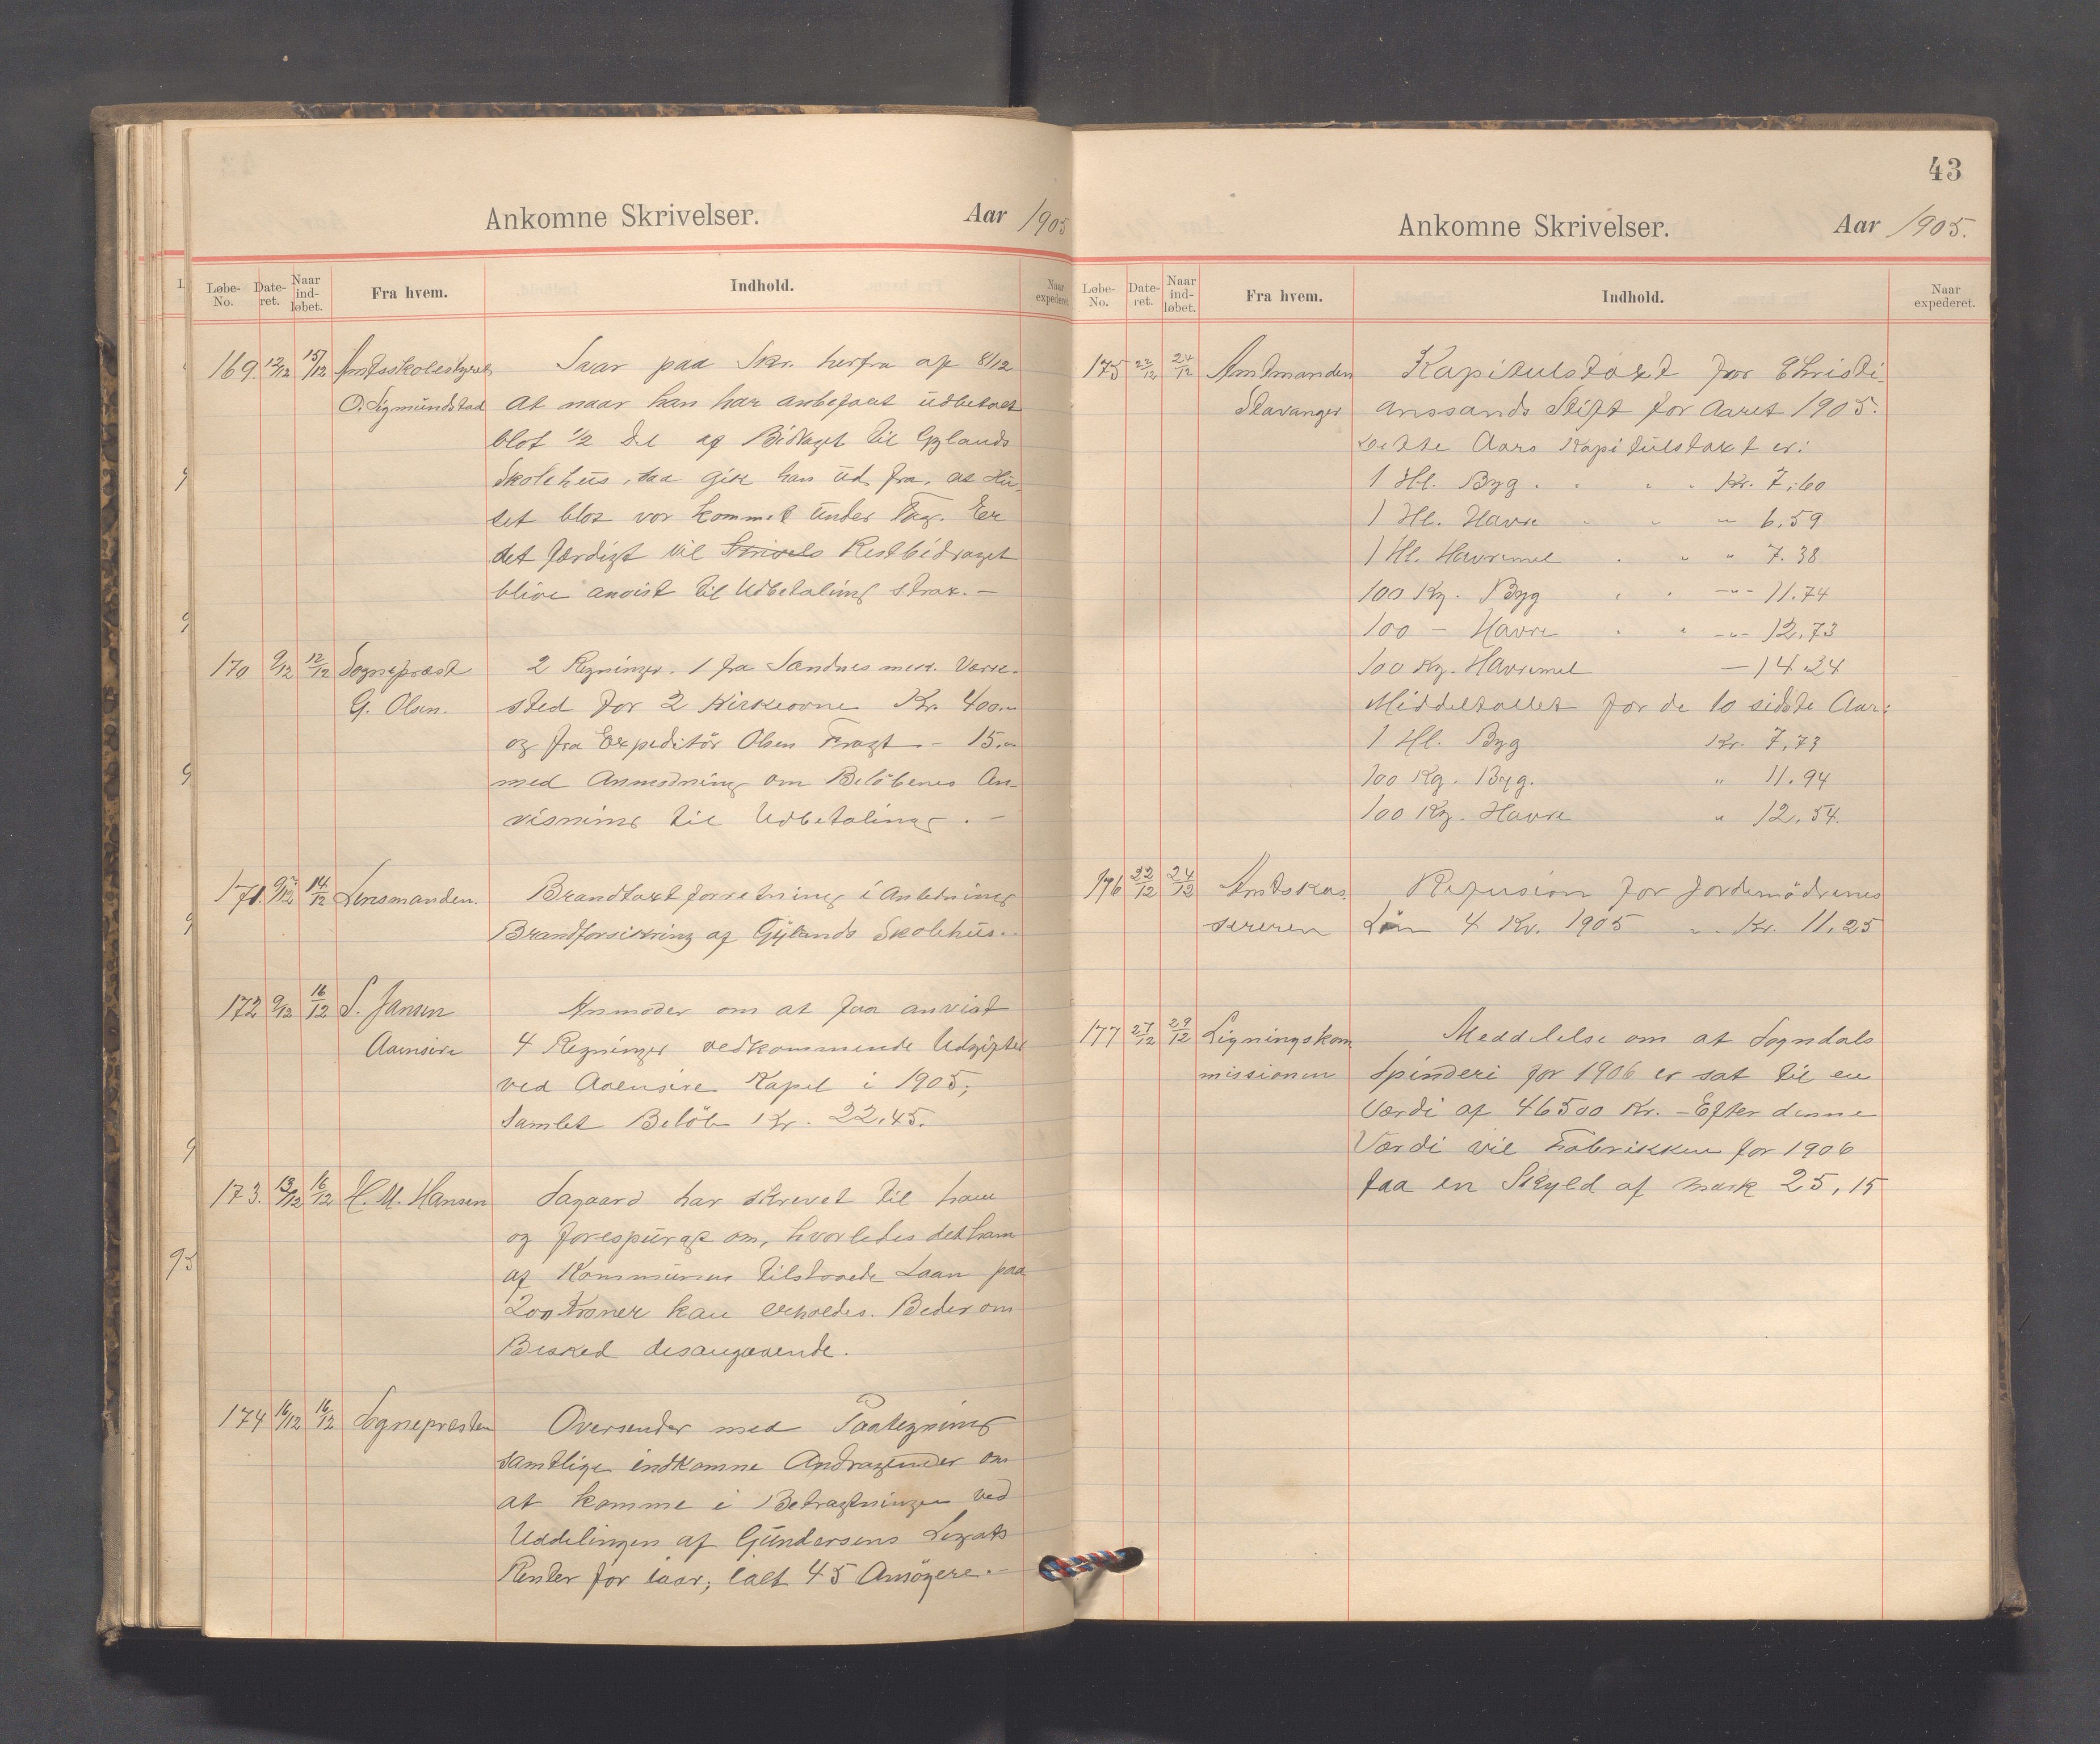 Ankomne Skrivelser. Aar 1905
Løbe-No. Dateret. Naar indløbet. Fra hvem. Indhold. Naar expederet.
169. 12/12 15/12 Amtsskolestyret Svar paa Skr. herfra af 8/12
O. Sigmundstad at naar han har anbefalet udbetalt
blot 1/2 Del af Bidraget til Gylands
Skolehus, saa gik han ud fra, at Hu-
set blot var kommet under Tag. Er
det færdigt vil Restbidraget
blive anvist til Udbetaling strax. –
170 9/12 12/12 Sogneprest 2 Regninger. 1 fra Sandnes mek. Værk-
G. Olsen. sted for 2 Kirkeovne Kr. 400.–
og fra Expeditör Olsen Fragt – 15.–
med Anmodning om Belöbenes An-
visning til Udbetaling. –
171. 9/12 14/12 Lensmanden. Brandtaxtforretning i Anledning
Brandforsikring af Gylands Skolehus.
172 9/12 16/12 S. Jansen Anmoder om at faa anvist
Aaensire 4 Regninger vedkommende Udgifter
ved Aaensire Kapel i 1905;
Samlet Belöb Kr. 22.45.
173. 13/12 16/12 H. M. Hansen Sagaard har skrevet til ham
og forespurgt om, hvorledes det ham
af Kommunen tilstaaede Laan paa
200 Kroner kan erholdes. Beder om
Besked desangaaende.
174 16/12 16/12 Sognepresten Oversender med Paategning
samtlige indkomne Andragender om
at komme i Betragtningen ved
Uddelingen af Gundersens Legats
Renter for iaar; ialt 45 Ansögere. –
43
Ankomne Skrivelser. Aar 1905.
Løbe-No. Dateret. Naar indløbet. Fra hvem. Indhold. Naar expederet.
175 22/12 24/12 Amtmanden Kapitulstaxt for Christi-
Stavanger anssands Stift for Aaret 1905.
Dette Aars Kapitulstaxt er:
1 Hl. Byg . . . . Kr. 7.60
1 Hl. Havre . . " 6.59
1 Hl. Havremel . . " 7.38
100 Kg. Byg . . –"– 11.74
100 – Havre . . –"– 12.73
100 Kg. Havremel – 14.24
Middeltallet for de 10 sidste Aar:
1 Hl. Byg Kr. 7,73
100 Kg. Byg. " 11.94
100 Kg. Havre " 12.54.
176 22/12 24/12 Amtskas- Refusion for Jordemödrenes
sereren Lön 4 Kv. 1905 . . Kr. 11.25
177 27/12 29/12 Ligningskom- Meddelelse om at Sogndals
missionen Spinderi for 1906 er sat til en
Værdi af 46500 Kr. – Efter denne
Værdi vil Fabrikken for 1906
faa en Skyld af mark 25,15